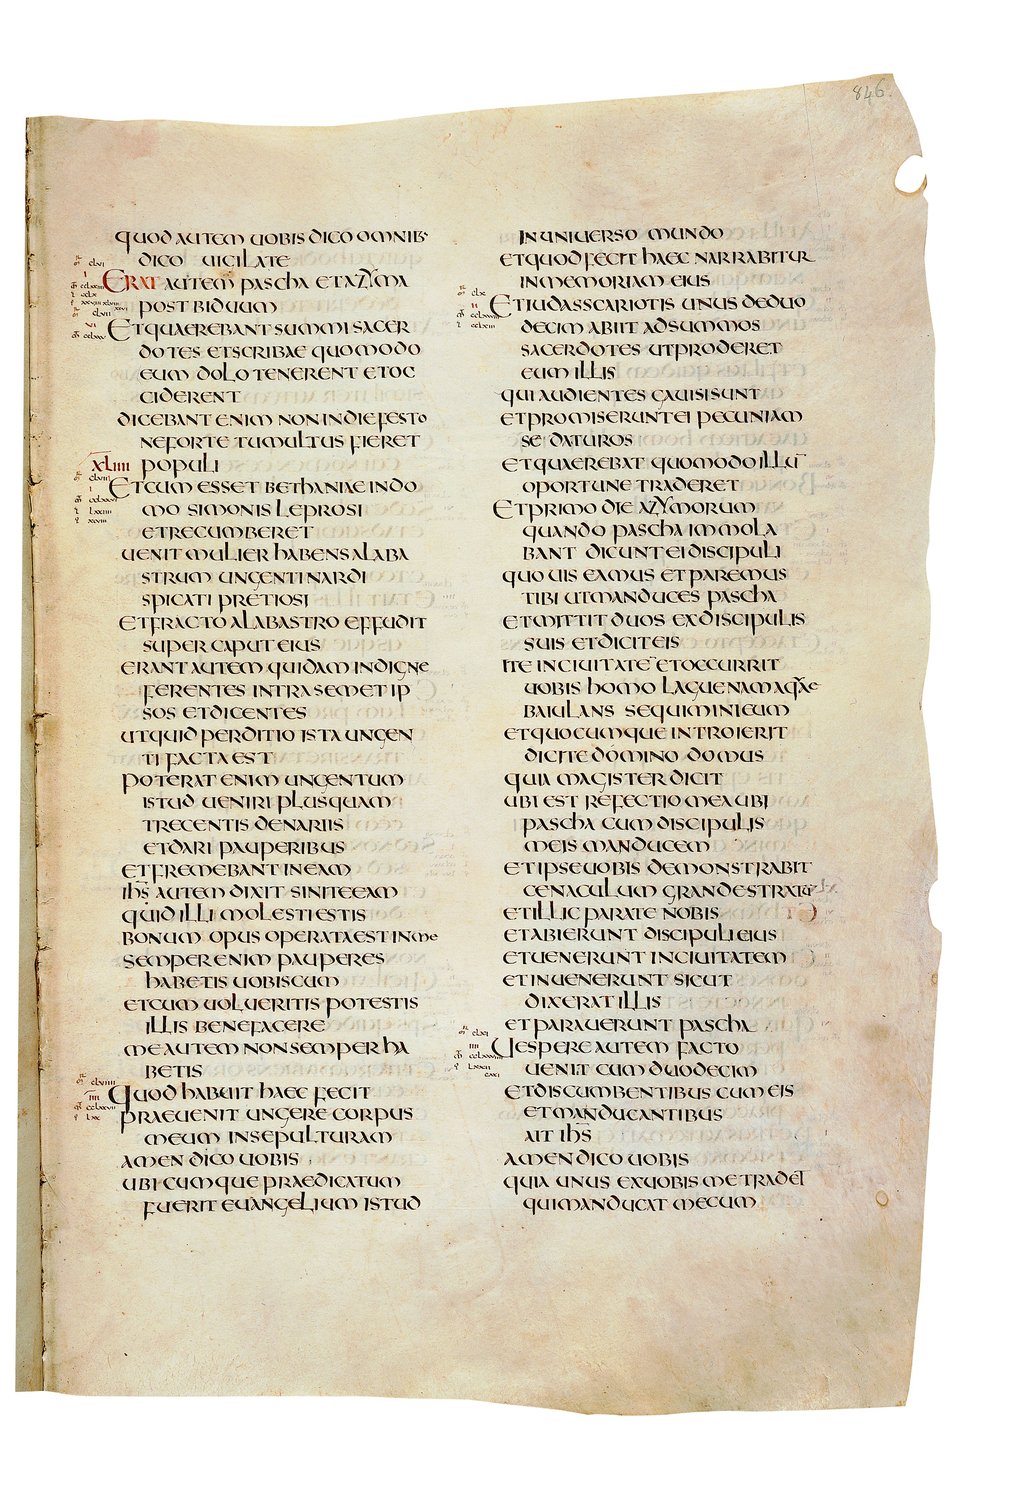 846.
QUOD AUTEM UOBIS DICO OMNIB·
DICO UIGILATE
ERAT AUTEM PASCHA ET AZYMA
POST BIDUUM
ET QUAEREBANT SUMMI SACER
DOTES ET SCRIBAE QUOMODO
EUM DOLO TENERENT ET OC
CIDERENT
DICEBANT ENIM NON IN DIE FESTO
NE FORTE TUMULTUS FIERET
XLIIII POPULI
ET CUM ESSET BETHANIAE IN DO
MO SIMONIS LEPROSI
ET RECUMBERET
UENIT MULIER HABENS ALABA
STRUM UNGENTI NARDI
SPICATI PRETIOSI
ET FRACTO ALABASTRO EFFUDIT
SUPER CAPUT EIUS
ERANT AUTEM QUIDAM INDIGNE
FERENTES INTRA SEMET IP
SOS ET DICENTES
UT QUID PERDITIO ISTA UNGEN
TI FACTA EST
POTERAT ENIM UNGENTUM
ISTUD UENIRI PLUS QUAM
TRECENTIS DENARIIS
ET DARI PAUPERIBUS
ET FREMEBANT IN EAM
IHS̄ AUTEM DIXIT SINITE EAM
QUID ILLI MOLESTI ESTIS
BONUM OPUS OPERATA EST IN ME
SEMPER ENIM PAUPERES
HABETIS UOBISCUM
ET CUM UOLUERITIS POTESTIS
ILLIS BENEFACERE
ME AUTEM NON SEMPER HA
BETIS
QUOD HABUIT HAEC FECIT
PRAEUENIT UNGERE CORPUS
MEUM IN SEPULTURAM
AMEN DICO UOBIS
UBICUMQUE PRAEDICATUM
FUERIT EUANGELIUM ISTUD
IN UNIUERSO MUNDO
ET QUOD FECIT HAEC NARRABITUR
IN MEMORIAM EIUS
ET IUDAS SCARIOTIS UNUS DE DUO
DECIM ABIIT AD SUMMOS
SACERDOTES UT PRODERET
EUM ILLIS
QUI AUDIENTES GAUISI SUNT
ET PROMISERUNT EI PECUNIAM
SE DATUROS
ET QUAEREBAT QUOMODO ILLŪ
OPORTUNE TRADERET
ET PRIMO DIE AZYMORUM
QUANDO PASCHA IMMOLA
BANT DICUNT EI DISCIPULI
QUO UIS EAMUS ET PAREMUS
TIBI UT MANDUCES PASCHA
ET MITTIT DUOS EX DISCIPULIS
SUIS ET DICIT EIS
ITE IN CIUITATĒ ET OCCURRIT
UOBIS HOMO LAGUENAM AQUAE
BAIULANS SEQUIMINI EUM
ET QUOCUMQUE INTROIERIT
DICITE DOMINO DOMUS
QUIA MAGISTER DICIT
UBI EST REFECTIO MEA UBI
PASCHA CUM DISCIPULIS
MEIS MANDUCEM
ET IPSE UOBIS DEMONSTRABIT
CENACULUM GRANDE STRATŪ
ET ILLIC PARATE NOBIS
ET ABIERUNT DISCIPULI EIUS
ET UENERUNT IN CIUITATEM
ET INUENERUNT SICUT
DIXERAT ILLIS
ET PARAUERUNT PASCHA
UESPERE AUTEM FACTO
UENIT CUM DUODECIM
ET DISCUMBENTIBUS CUM EIS
ET MANDUCANTIBUS
AIT IHS̄
AMEN DICO UOBIS
QUIA UNUS EX UOBIS ME TRADET
QUI MANDUCAT MECUM